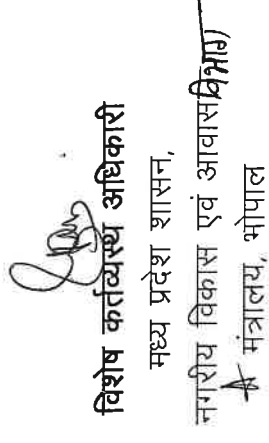 विशेष कर्तव्यस्थ अधिकारी
मध्य प्रदेश शासन,
नगरीय विकास एवं आवास विभाग,
मंत्रालय, भोपाल